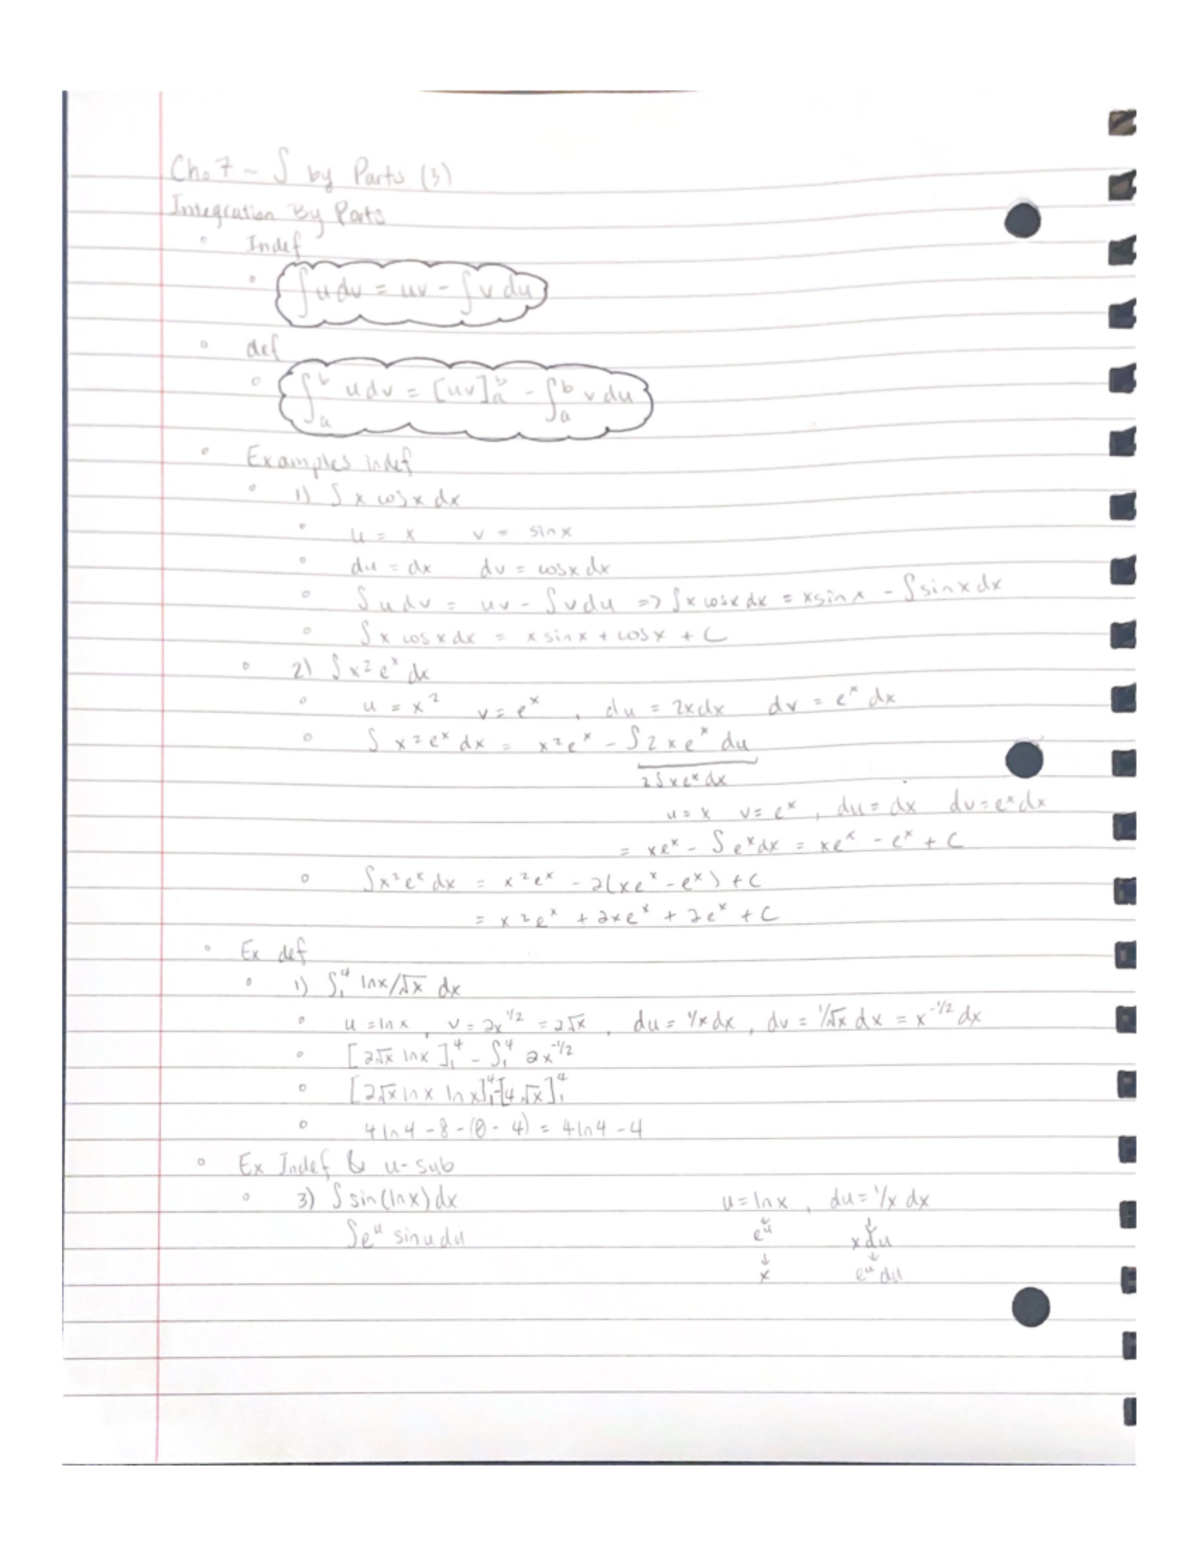 Ch. 7 ~ ∫ by Parts (3)
Integration By Parts
◦ Indef
◦ ∫u dv = uv - ∫v du
◦ def
◦ ∫_a^b u dv = [uv]_a^b - ∫_a^b v du
◦ Examples indef
◦ 1) ∫ x cosx dx
◦ u = x v = sinx
◦ du = dx dv = cosx dx
◦ ∫u dv = uv - ∫v du => ∫x cosx dx = x sinx - ∫sinx dx
◦ ∫x cosx dx = x sinx + cosx + C
◦ 2) ∫x² e^x dx
◦ u = x² v = e^x , du = 2x dx dv = e^x dx
◦ ∫ x² e^x dx = x² e^x - ∫2 x e^x du
2∫x e^x dx
u = x v = e^x , du = dx dv = e^x dx
= xe^x - ∫e^x dx = xe^x - e^x + C
◦ ∫x² e^x dx = x² e^x - 2(xe^x - e^x) + C
= x² e^x + 2xe^x + 2e^x + C
◦ Ex def
◦ 1) ∫_1^4 lnx/√x dx
◦ u = ln x , v = 2x^1/2 = 2√x , du = 1/x dx , dv = 1/√x dx = x^-1/2 dx
◦ [2√x lnx]_1^4 - ∫_1^4 2x^-1/2
◦ [2√x lnx lnx]_1^4 - [4√x]_1^4
◦ 4ln4 - 8 - (0 - 4) = 4ln4 - 4
◦ Ex Indef & u-sub
◦ 3) ∫ sin(lnx) dx u = lnx , du = 1/x dx
∫e^u sinu du e^u x du
↓ ↓
x e^u du